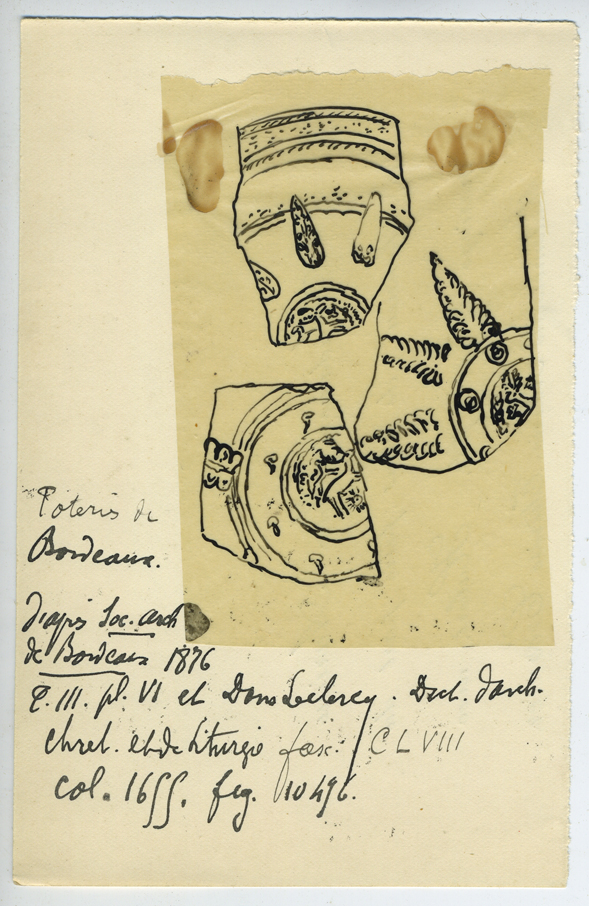 Poteries de
Bordeaux.
d'après Soc. arch
de Bordeaux 1876
T. III. pl. VI et Dom Leclercq. Dict. d'arch.
chret. et de liturgie fasc. CLVIII
col. 1655. fig. 10496.